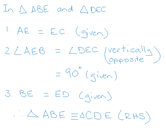 In △ ABE and △DEC
1. AE = EC (given)
2. ∠AEB = ∠DEC (vertically opposite)
= 90° (given)
3. BE = ED (given)
∴ △ ABE ≡ △CDE (RHS)